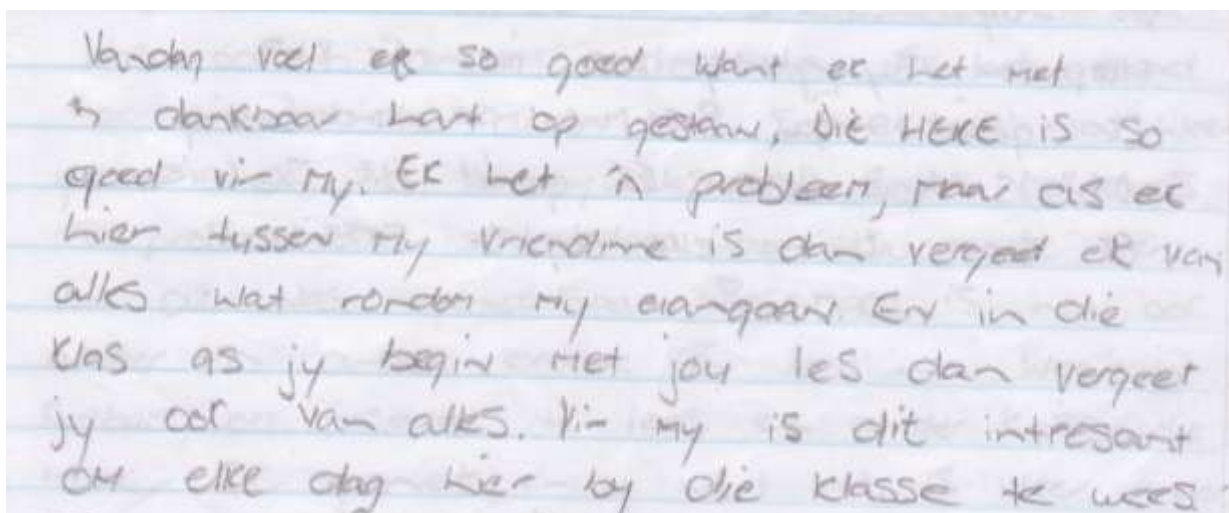 Vandag voel ek so goed want ek het met
'n dankbaar hart op gestaan, Die HERE is so
goed vir my. Ek het 'n probleem, maar as ek
hier tussen my vriendinne is dan vergeet ek van
alles wat rondom my aangaan. En in die
klas as jy begin met jou les dan vergeet
jy oor van alles. Vir my is dit intresant
om elke dag hier by die klasse te wees